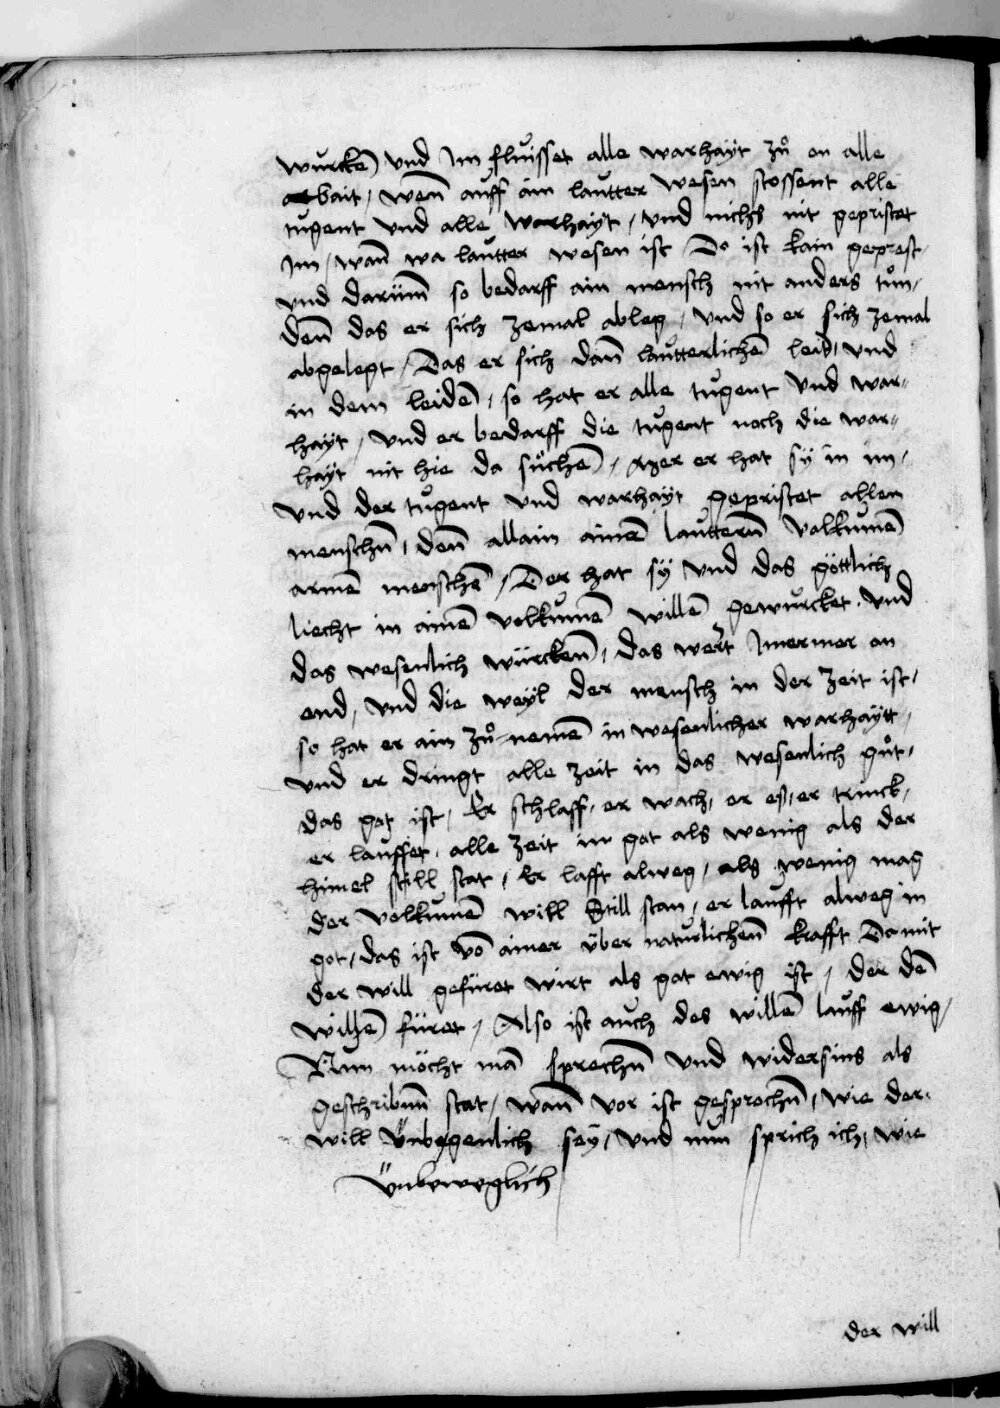 wurckē und Jm fluisset alle warhayt zů on alle
arbait / wen̄ auff ain lautter wesen stossent alle
tugent und alle warhayt / und nichs nit gepristet
Jm / wan̄ wa lautter wesen ist / Do ist kain geprest
und darum̄ so bedarff ain mensch nit anders tůn /
den̄ das er sich zemal ableg / und so er sich zemal
abgelegt / Das er sich dan̄ lautterlichē leid / und
in dem leidē / so hat er alle tugent und war=
hayt / und er bedarff die tugent noch die war=
hayt nit hie da sůchē / Aber er hat sÿ in im /
und der tugent und warhayt gepristet allen
menschn̄ / den̄ allain ainē lauttern̄ volkumē
armē menschē / Der hat sÿ und das göttlich
liecht in ainē volkumē willē gewurcket . und
das wesenlich würcken̄ / das wert Jmermer on
end / und die weyl der mensch in der zeit ist /
so hat er ain zů=nemē in wesenlicher warhaytt /
und er dringt alle zeit in das wesenlich gůt /
das got ist / Er schlaff / er wach / er eß / er trinck /
er lauffet . alle zeit in got als wenig als der
himel still stat / Er lafft alweg / als wenig mag
der volkumē will Still stan / er laufft alweg in
got / das ist vō ainer über naturlichen̄ krafft Damit
der will gefüret wirt als got ewig ist / der dē
willē füret / Also ist auch des willē lauff ewig /
Nun möcht mā sprechn̄ und widersins als
geschribnn̄ stat / wan̄ vor ist gesprochn̄ / wie der
will unbegenlich seÿ / und nun sprich ich / wie
unbeweglich
der will